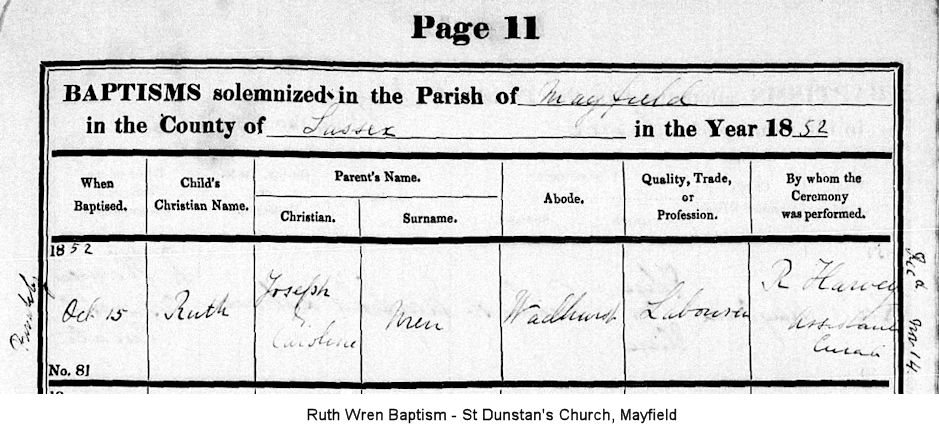 Page 11
BAPTISMS solemnized in the Parish of Mayfield
in the County of Sussex in the Year 1852
When Baptised.
Child's Christian Name.
Parent's Name.
Christian.
Surname.
Abode.
Quality, Trade, or Profession.
By whom the Ceremony was performed.
1852
Oct 15
Ruth
Joseph
Caroline
Wren
Wadhurst
Labourer
R Harvey
Assistant
Curate
No. 81
Ruth Wren Baptism - St Dunstan's Church, Mayfield